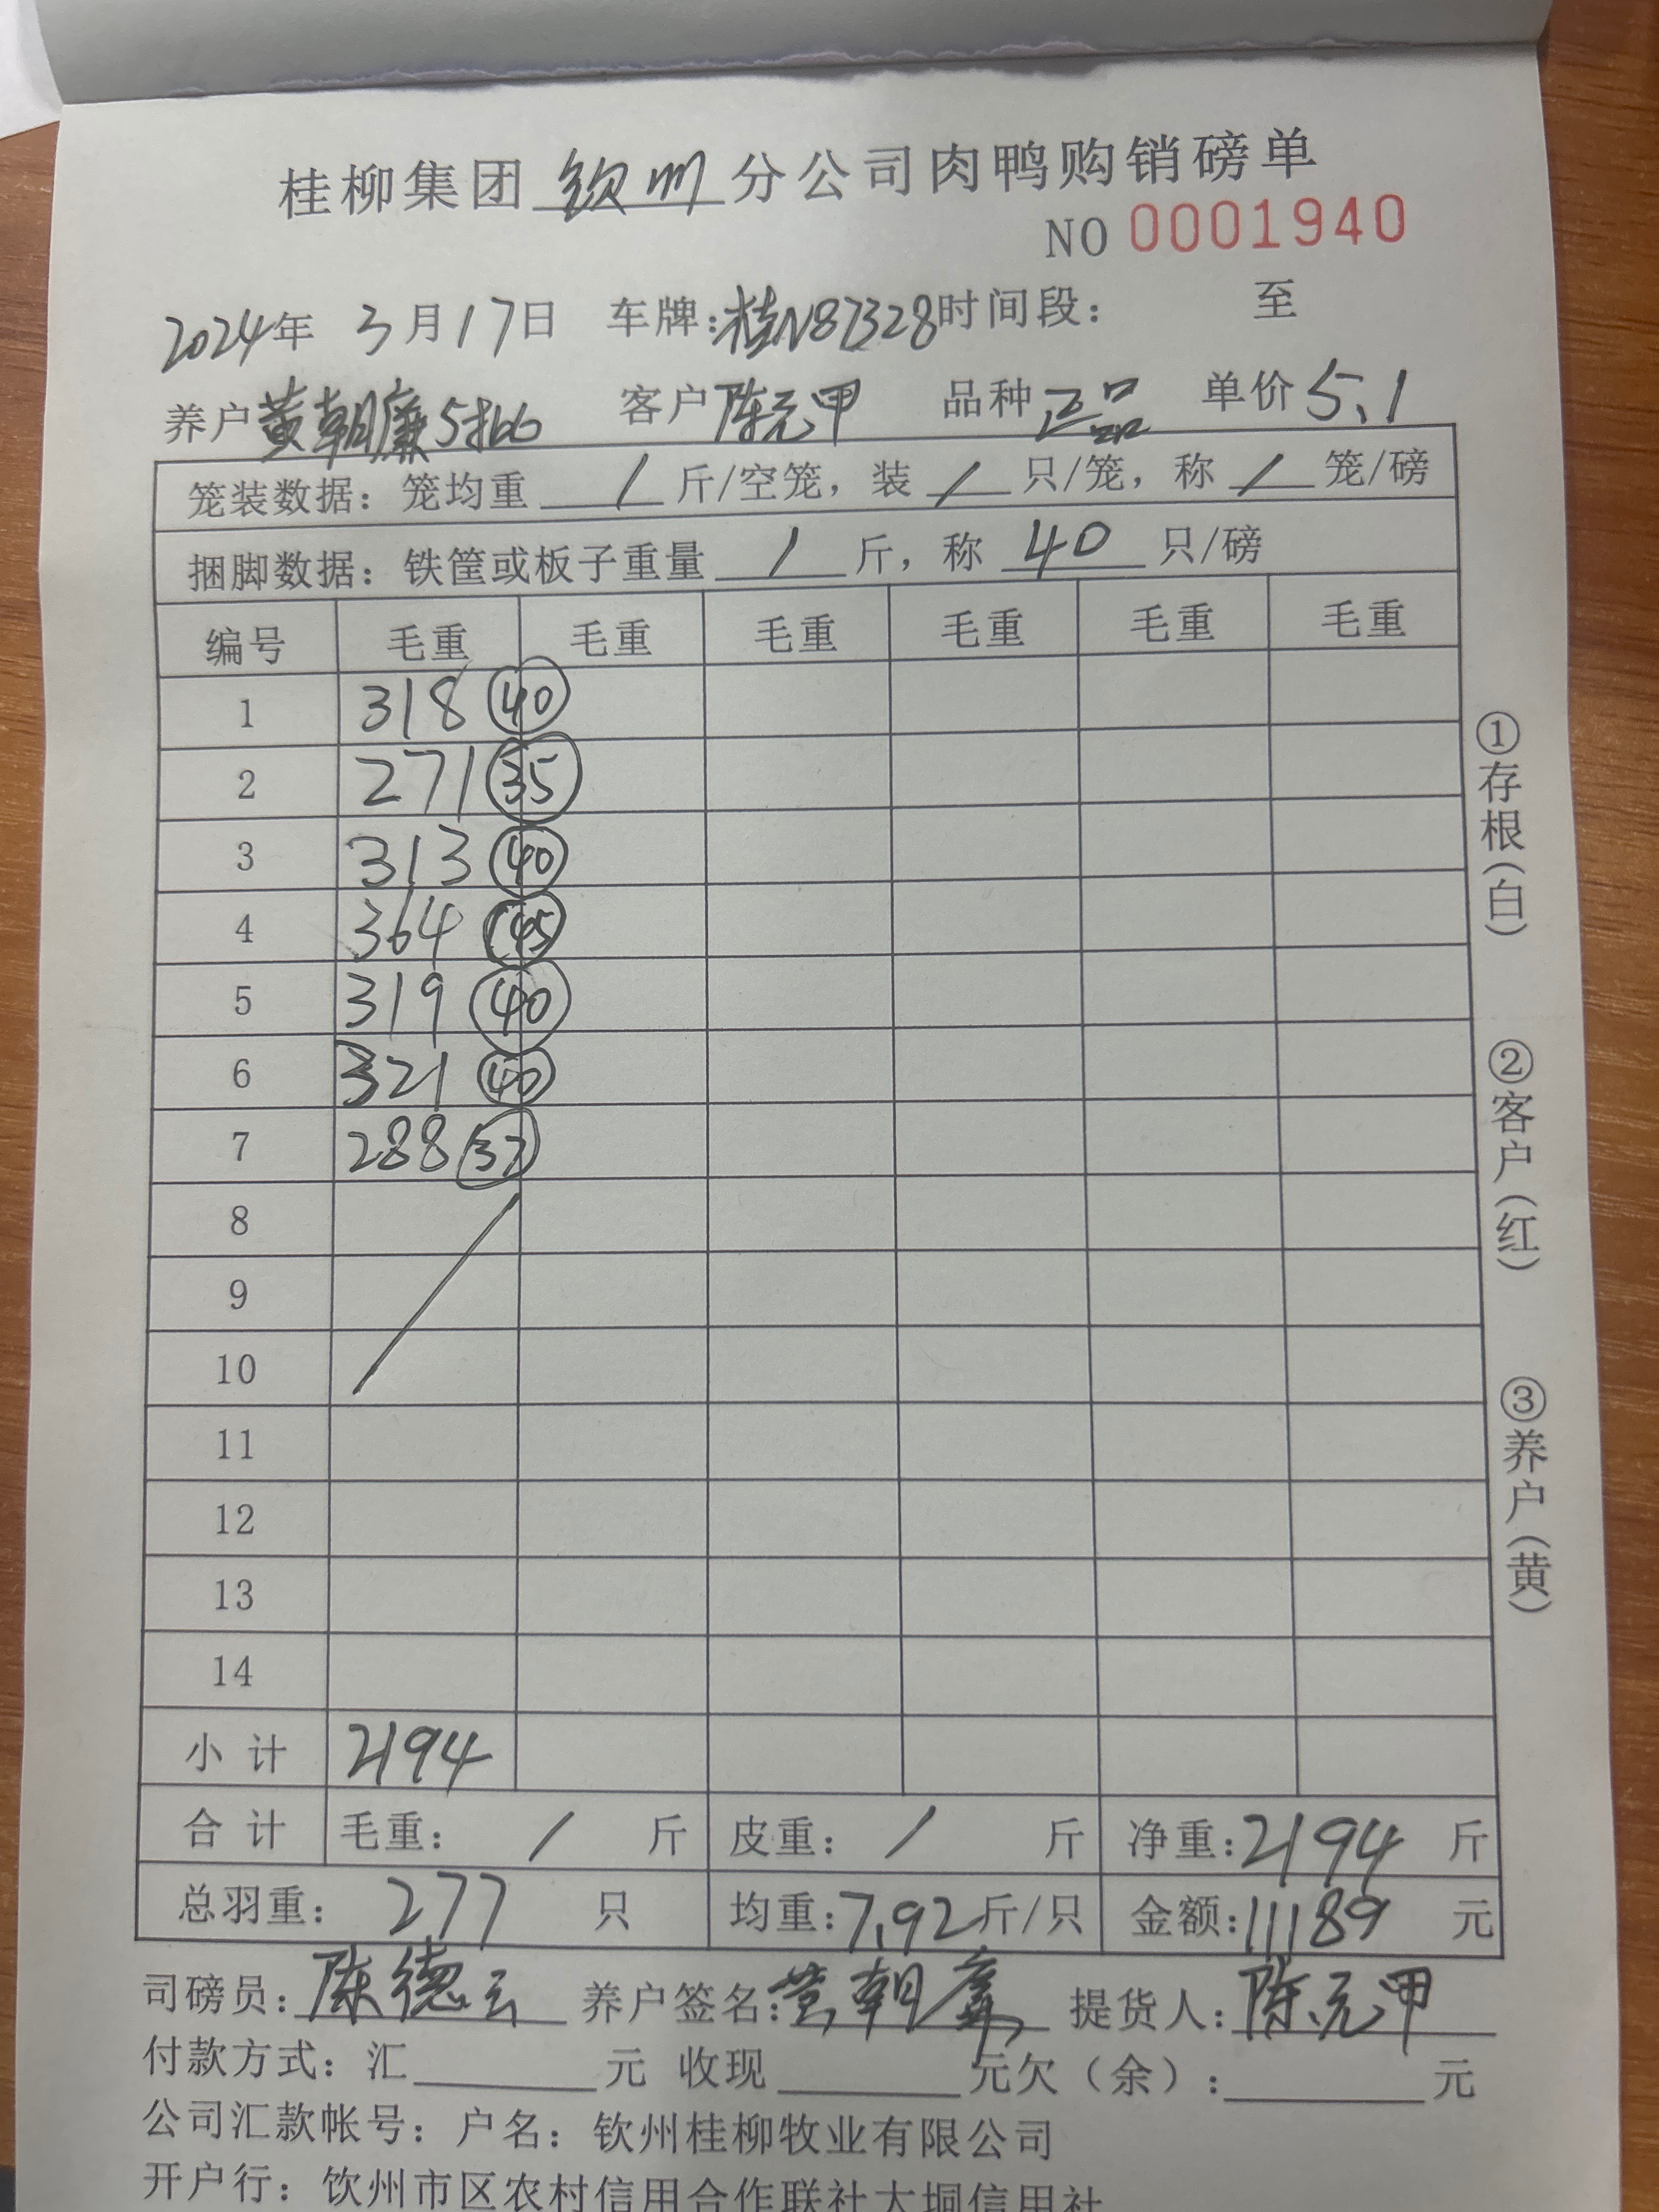 桂柳集团 钦州 分公司肉鸭购销磅单
NO 0001940
2024年 3月17日 车牌:桂N87328时间段: 至
养户 黄朝廉5批 客户 陈元甲 品种 正品 单价 5.1
笼装数据: 笼均重 / 斤/空笼, 装 / 只/笼, 称 / 笼/磅
捆脚数据: 铁筐或板子重量 / 斤, 称 40 只/磅
编号 毛重 毛重 毛重 毛重 毛重 毛重
1 318 40
2 271 35
3 313 40
4 364 45
5 319 40
6 321 40
7 288 37
8
9
10
11
12
13
14
小计 2194
合计 毛重: / 斤 皮重: / 斤 净重:2194 斤
总羽重: 277 只 均重:7.92斤/只 金额:11189 元
司磅员: 陈德云 养户签名: 黄朝廉 提货人: 陈元甲
付款方式: 汇 元 收现 元欠(余): 元
公司汇款帐号: 户名: 钦州桂柳牧业有限公司
开户行: 钦州市区农村信用合作联社大垌信用社
①存根(白)
②客户(红)
③养户(黄)